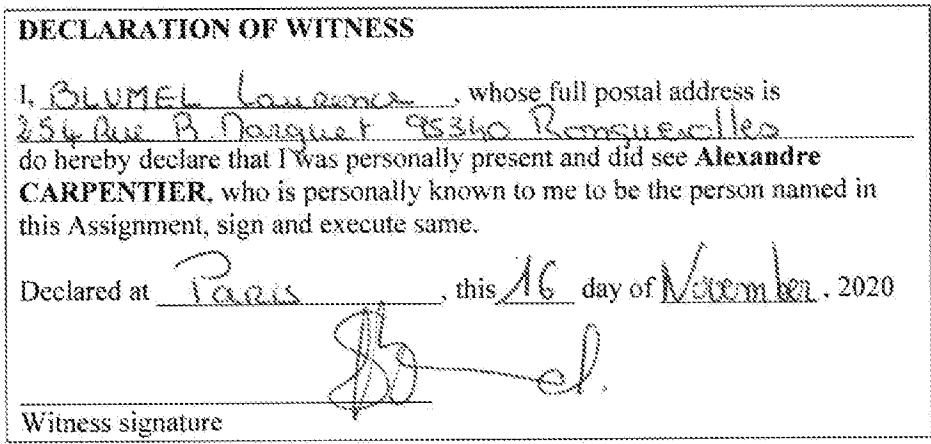 DECLARATION OF WITNESS
I, BLUMEL Laurence, whose full postal address is
254 Rue B Darquet 95340 Ronquerolles
do hereby declare that I was personally present and did see Alexandre
CARPENTIER, who is personally known to me to be the person named in
this Assignment, sign and execute same.
Declared at Paris, this 16 day of November, 2020
Witness signature